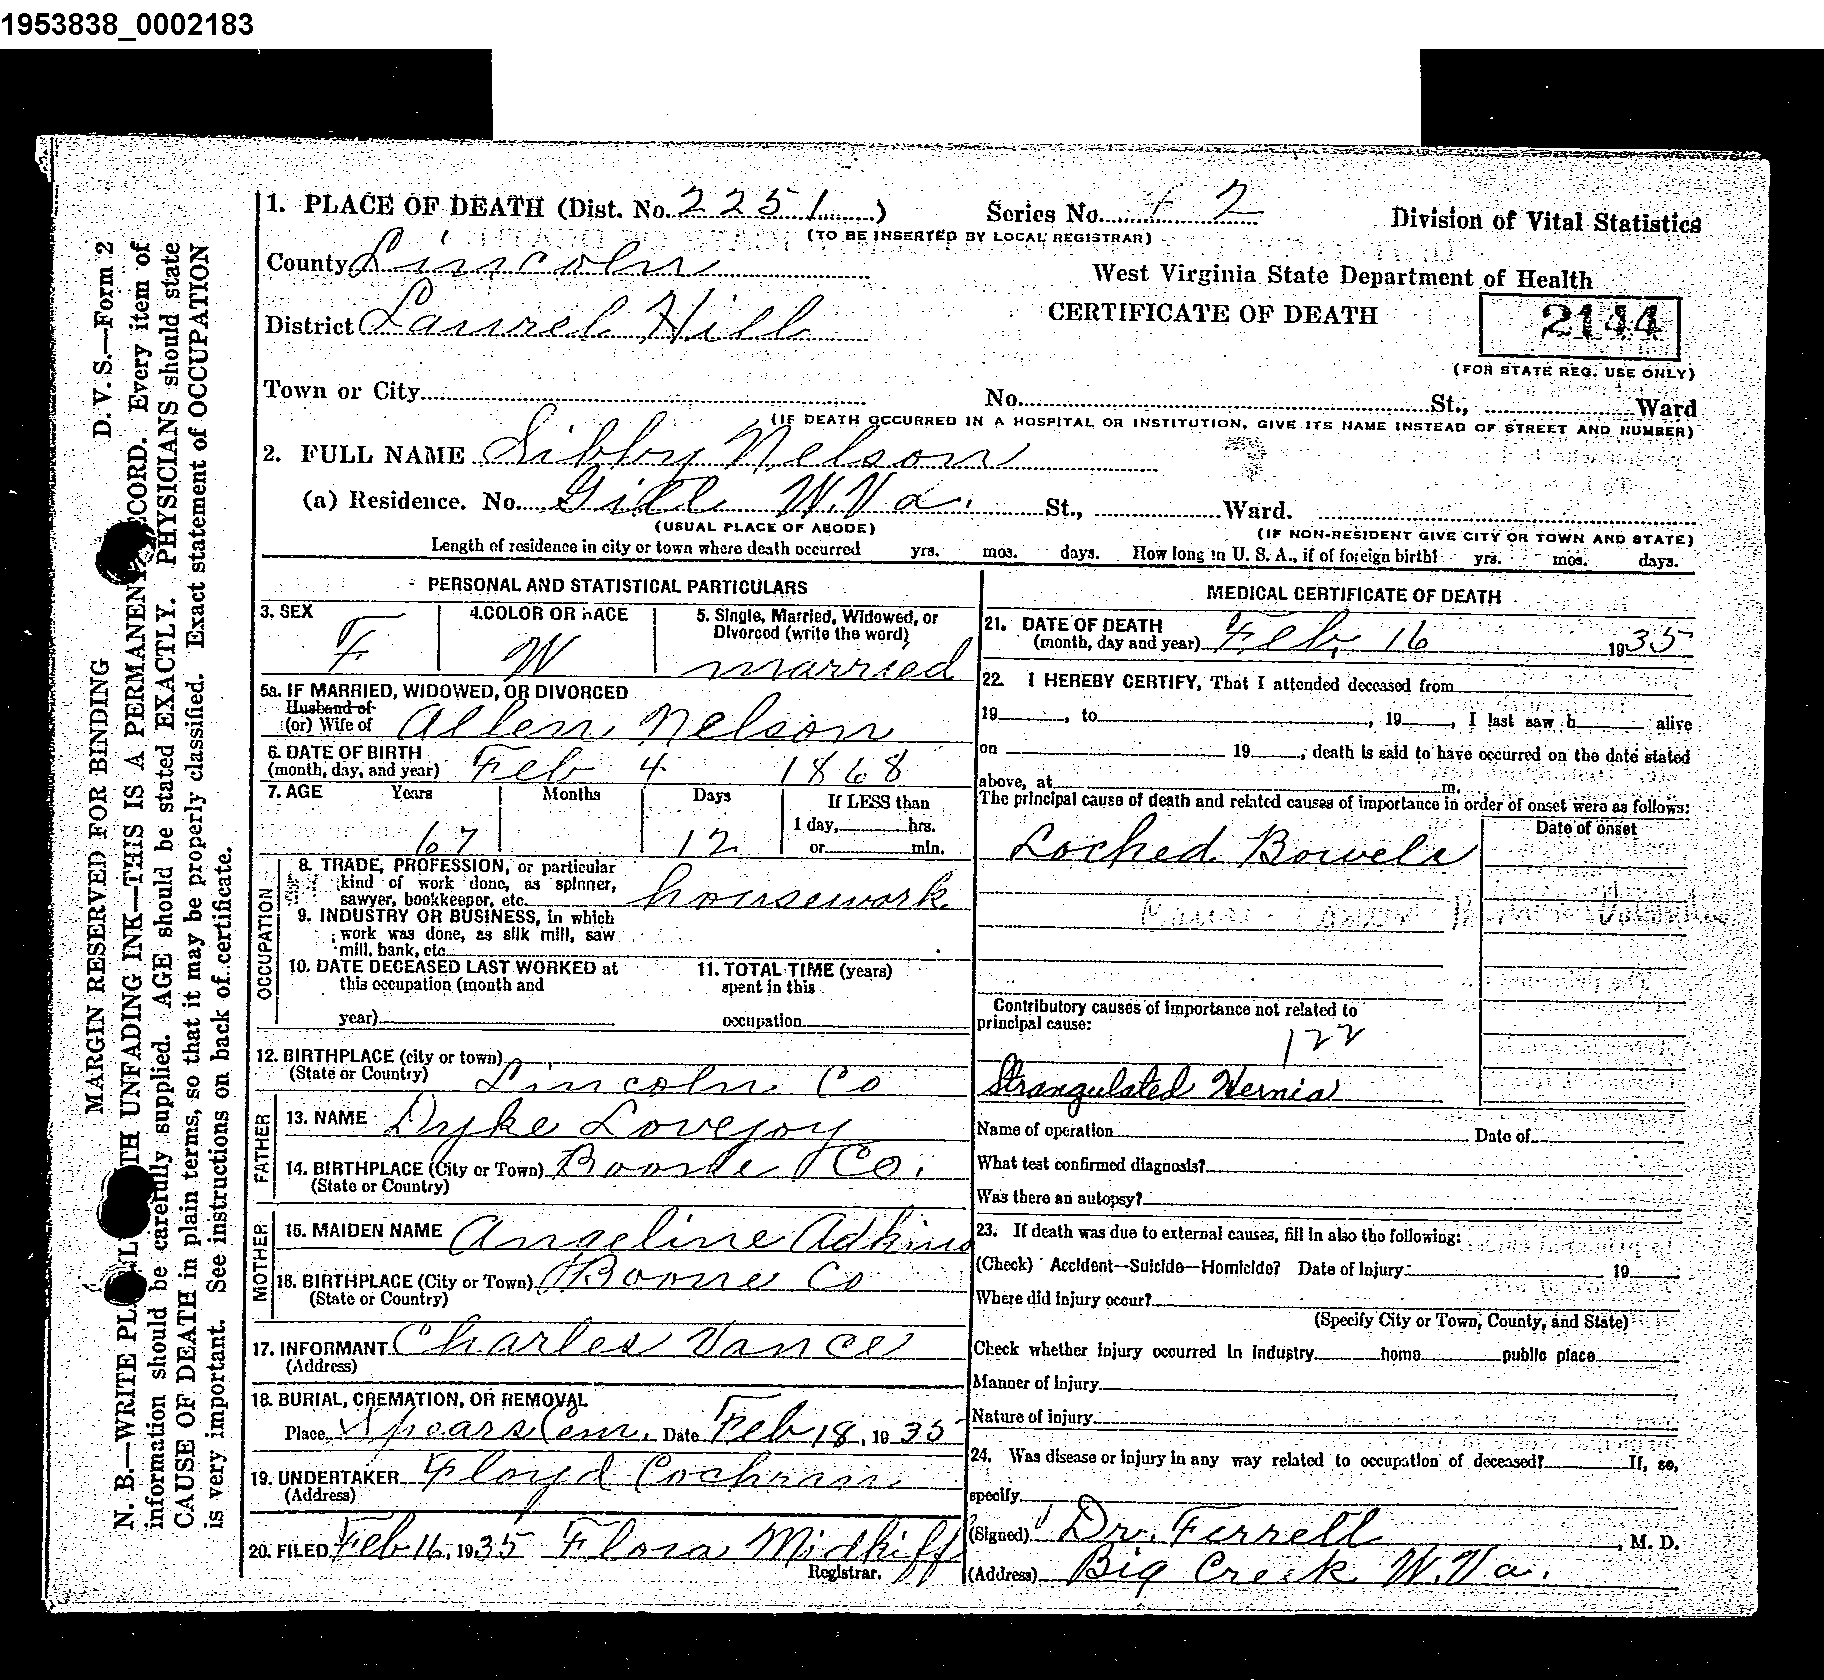 1953838_0002183
D. V. S.—Form 2
MARGIN RESERVED FOR BINDING
N. B.—WRITE PL TH UNFADING INK—THIS IS A PERMANENT CORD. Every item of
information should be carefully supplied. AGE should be stated EXACTLY. PHYSICIANS should state
CAUSE OF DEATH in plain terms, so that it may be properly classified. Exact statement of OCCUPATION
is very important. See instructions on back of certificate.
1. PLACE OF DEATH (Dist. No. 2251) Series No. 2 Division of Vital Statistics
(TO BE INSERTED BY LOCAL REGISTRAR)
County Lincoln
West Virginia State Department of Health
District Laurel Hill
CERTIFICATE OF DEATH
2144
(FOR STATE REG. USE ONLY)
Town or City No. St., Ward
(IF DEATH OCCURRED IN A HOSPITAL OR INSTITUTION, GIVE ITS NAME INSTEAD OF STREET AND NUMBER)
2. FULL NAME Sibby Nelson
(a) Residence. No. Gill W.Va. St., Ward.
(USUAL PLACE OF ABODE) (IF NON-RESIDENT GIVE CITY OR TOWN AND STATE)
Length of residence in city or town where death occurred yrs. mos. days. How long in U. S. A., if of foreign birth? yrs. mos. days.
PERSONAL AND STATISTICAL PARTICULARS
3. SEX F
4. COLOR OR RACE W
5. Single, Married, Widowed, or
Divorced (write the word)
married
5a. IF MARRIED, WIDOWED, OR DIVORCED
Husband of
(or) Wife of Allen Nelson
6. DATE OF BIRTH
(month, day, and year) Feb 4 1868
7. AGE Years Months Days If LESS than
1 day, hrs.
67 12 or min.
OCCUPATION
8. TRADE, PROFESSION, or particular
kind of work done, as spinner,
sawyer, bookkeeper, etc. housework
9. INDUSTRY OR BUSINESS, in which
work was done, as silk mill, saw
mill, bank, etc.
10. DATE DECEASED LAST WORKED at
this occupation (month and
year)
11. TOTAL TIME (years)
spent in this
occupation
12. BIRTHPLACE (city or town)
(State or Country) Lincoln Co
FATHER
13. NAME Dyke Lovejoy
14. BIRTHPLACE (City or Town) Boone Co.
(State or Country)
MOTHER
15. MAIDEN NAME Angeline Adkins
16. BIRTHPLACE (City or Town) Boone Co
(State or Country)
17. INFORMANT Charles Vance
(Address)
18. BURIAL, CREMATION, OR REMOVAL
Place Spears Cem. Date Feb 18, 1935
19. UNDERTAKER Floyd Cochran
(Address)
20. FILED Feb 16, 1935 Flora Midkiff
Registrar.
MEDICAL CERTIFICATE OF DEATH
21. DATE OF DEATH
(month, day and year) Feb 16 1935
22. I HEREBY CERTIFY, That I attended deceased from
19 , to , 19 , I last saw h alive
on 19 , death is said to have occurred on the date stated
above, at m.
The principal cause of death and related causes of importance in order of onset were as follows:
Date of onset
Locked Bowels
Contributory causes of importance not related to
principal cause:
122
Strangulated Hernia
Name of operation Date of
What test confirmed diagnosis?
Was there an autopsy?
23. If death was due to external causes, fill in also the following:
(Check) Accident—Suicide—Homicide? Date of Injury 19
Where did injury occur?
(Specify City or Town, County, and State)
Check whether injury occurred in industry home public place
Manner of injury
Nature of injury
24. Was disease or injury in any way related to occupation of deceased? If, so,
specify
(Signed) Dr. Ferrell , M. D.
(Address) Big Creek W.Va.